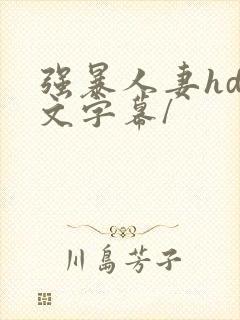 强暴人妻hd
文字幕/
川島芳子